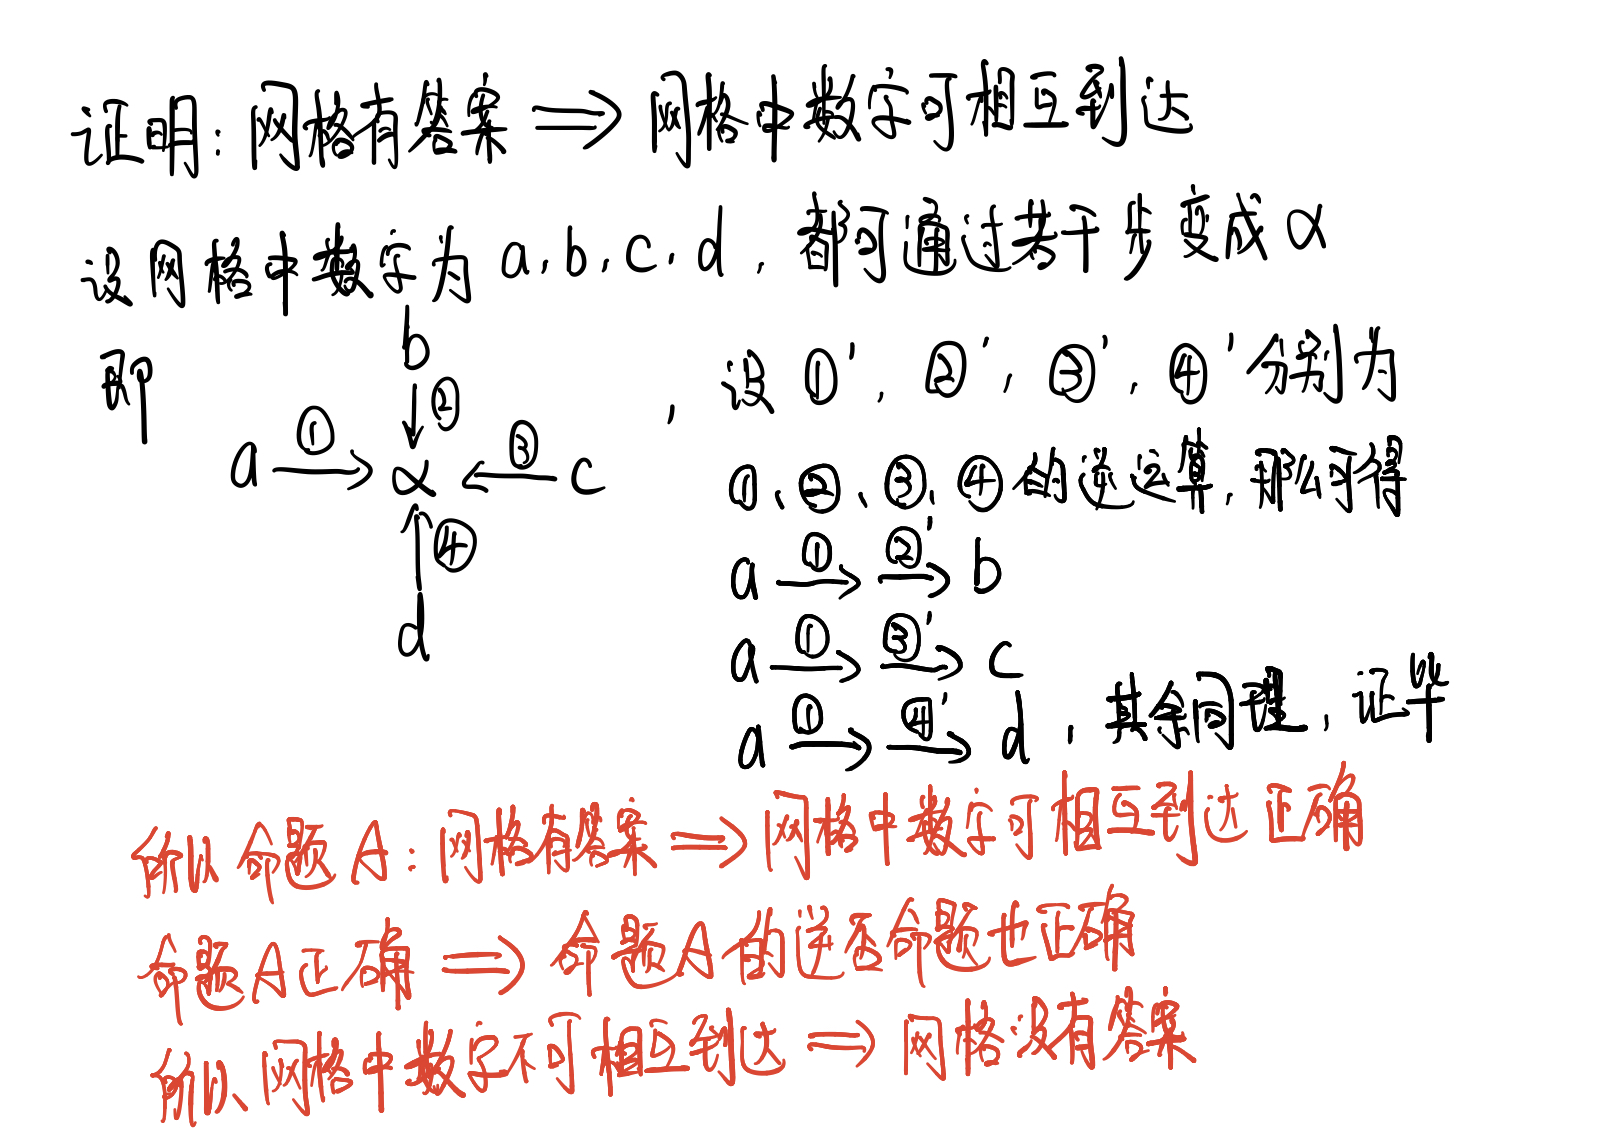 证明：网格有答案 ⟹ 网格中数字可相互到达
设网格中数字为 a, b, c, d，都可通过若干步变成 α
即
b
↓ ②
a ① → α ← ③ c
↑ ④
d
，设 ①′，②′，③′，④′ 分别为
①、②、③、④ 的逆运算，那么可得
a ①→ ②′→ b
a ①→ ③′→ c
a ①→ ④′→ d，其余同理，证毕
所以命题A：网格有答案 ⟹ 网格中数字可相互到达正确
命题A正确 ⟹ 命题A的逆否命题也正确
所以网格中数字不可相互到达 ⟹ 网格没有答案